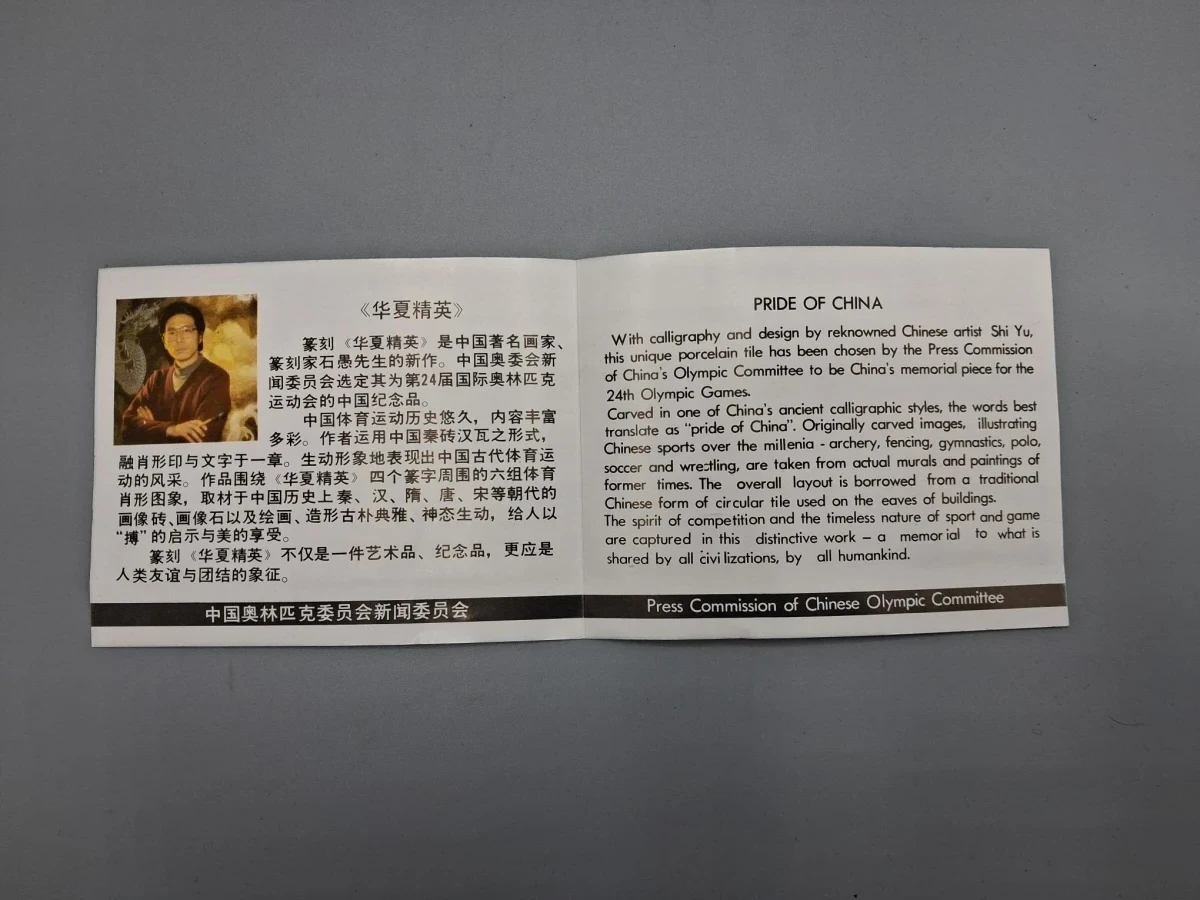 《华夏精英》
篆刻《华夏精英》是中国著名画家、
篆刻家石愚先生的新作。中国奥委会新
闻委员会选定其为第24届国际奥林匹克
运动会的中国纪念品。
中国体育运动历史悠久，内容丰富
多彩。作者运用中国秦砖汉瓦之形式，
融肖形印与文字于一章。生动形象地表现出中国古代体育运
动的风采。作品围绕《华夏精英》四个篆字周围的六组体育
肖形图象，取材于中国历史上秦、汉、隋、唐、宋等朝代的
画像砖、画像石以及绘画、造形古朴典雅、神态生动，给人以
“搏”的启示与美的享受。
篆刻《华夏精英》不仅是一件艺术品、纪念品，更应是
人类友谊与团结的象征。
中国奥林匹克委员会新闻委员会
PRIDE OF CHINA
With calligraphy and design by reknowned Chinese artist Shi Yu,
this unique porcelain tile has been chosen by the Press Commission
of China's Olympic Committee to be China's memorial piece for the
24th Olympic Games.
Carved in one of China's ancient calligraphic styles, the words best
translate as "pride of China". Originally carved images, illustrating
Chinese sports over the millenia - archery, fencing, gymnastics, polo,
soccer and wrestling, are taken from actual murals and paintings of
former times. The overall layout is borrowed from a traditional
Chinese form of circular tile used on the eaves of buildings.
The spirit of competition and the timeless nature of sport and game
are captured in this distinctive work – a memorial to what is
shared by all civilizations, by all humankind.
Press Commission of Chinese Olympic Committee